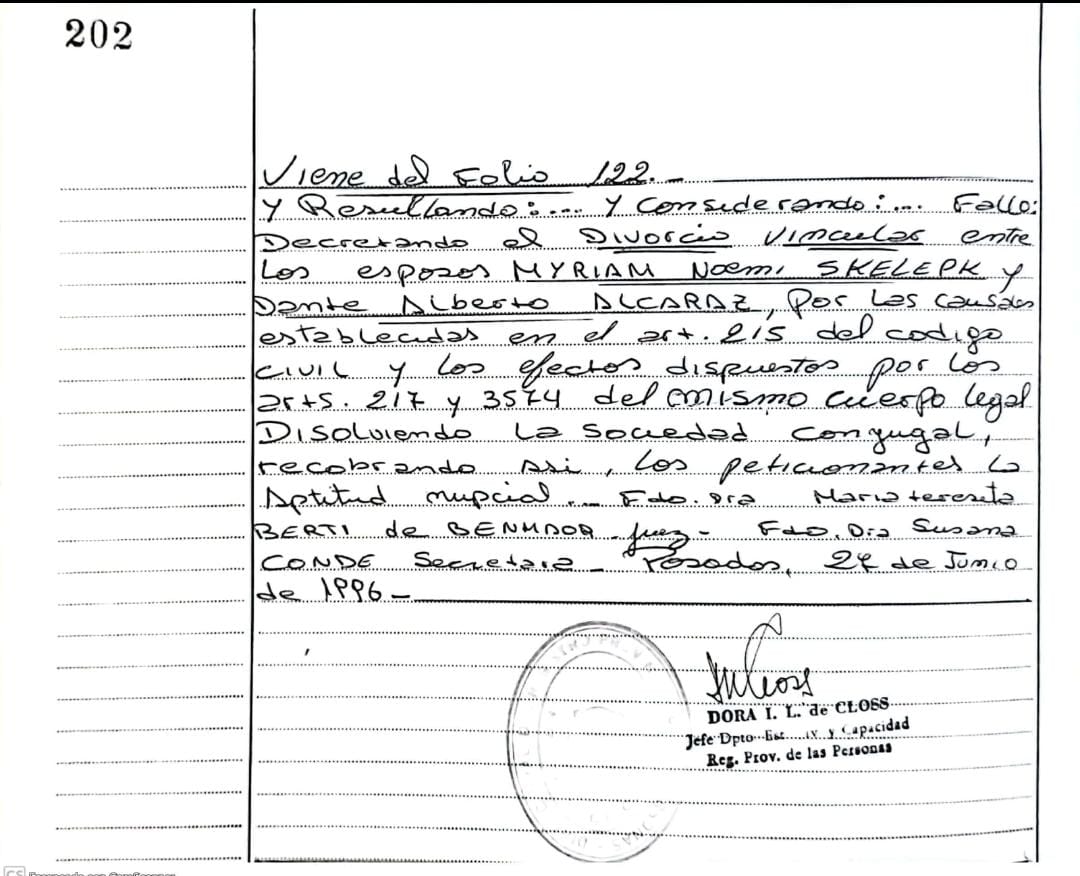 202
Viene del Folio 122.-
Y Resultando:.... Y Considerando:.... Fallo:
Decretando el Divorcio Vincular entre
Los esposos MYRIAM Noemi SKELEPK y
Dante Alberto ALCARAZ, Por Las causales
establecidas en el art. 215 del codigo
CIVIL y Los efectos dispuestos por Los
arts. 217 y 3574 del mismo cuerpo legal
Disolviendo La Sociedad Conyugal,
recobrando asi, Los peticionantes La
Aptitud nupcial.- Fdo. Dra Maria teresita
BERTI de BENMAOR - Juez - Fdo. Dra Susana
CONDE Secretaria - Posadas, 27 de Junio
de 1996 -
DORA I. L. de CLOSS
Jefe Dpto y Capacidad
Reg. Prov. de las Personas
CS